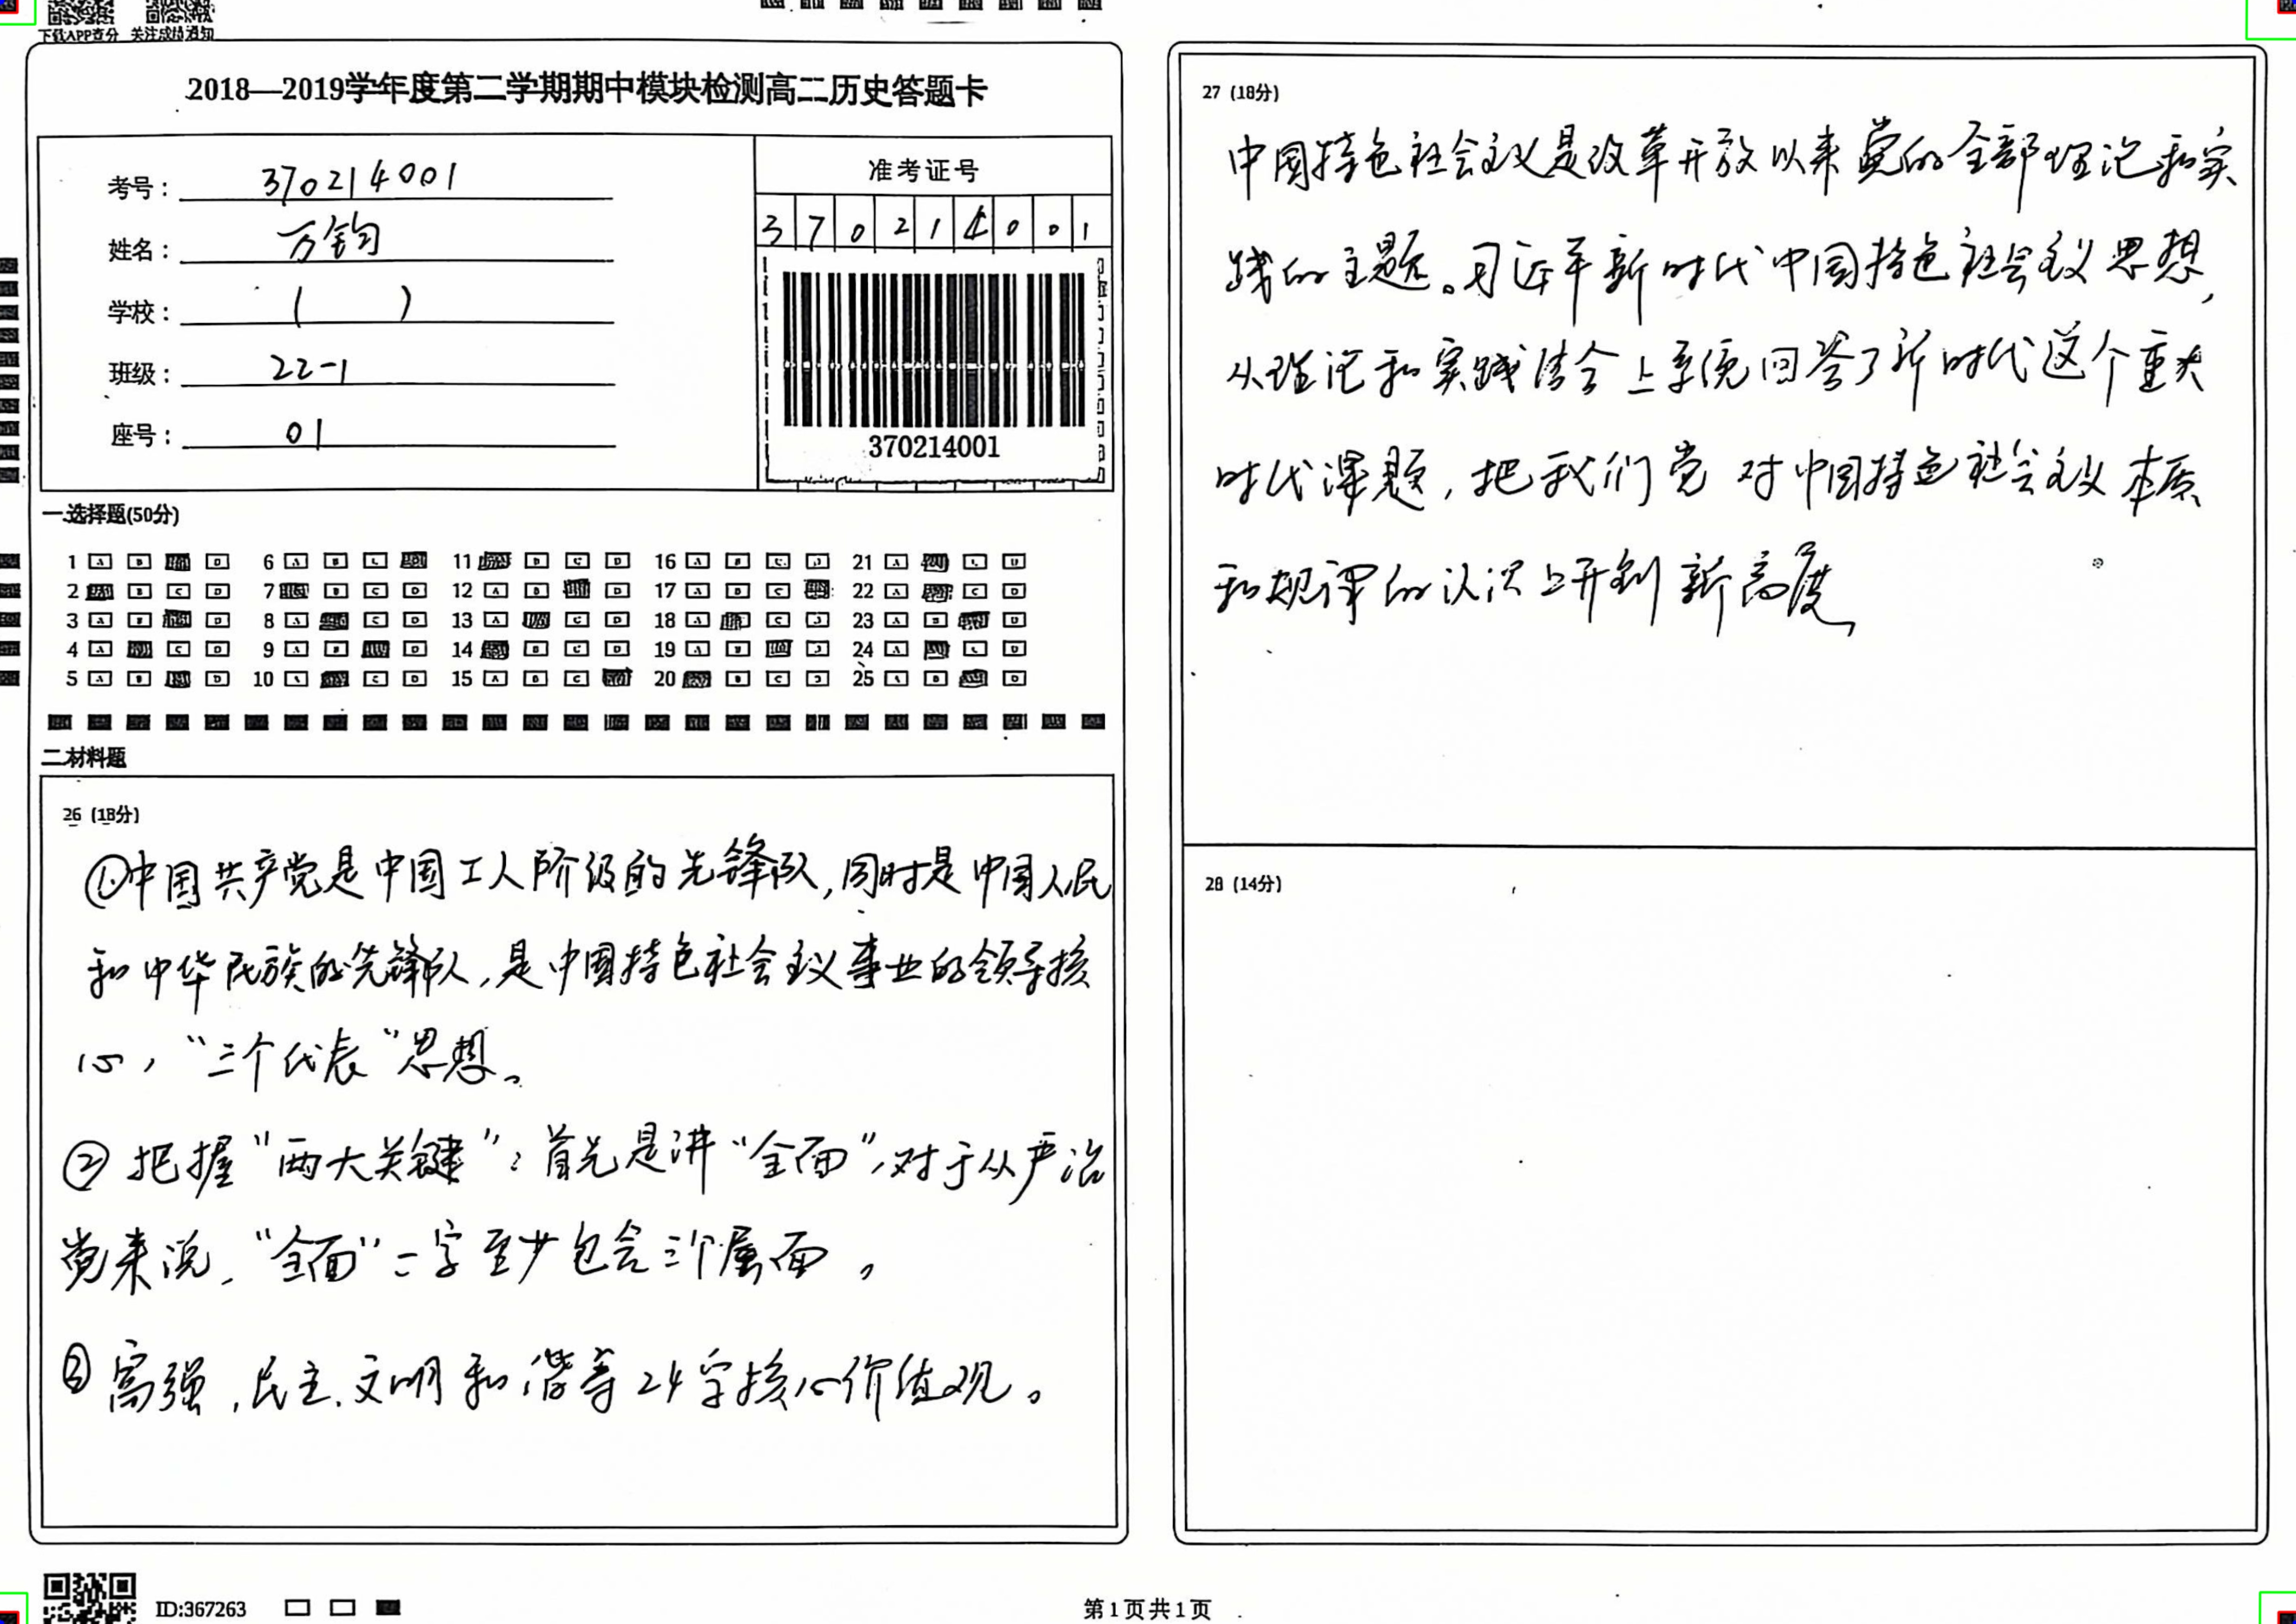 下载APP查分 关注成绩通知
2018—2019学年度第二学期期中模块检测高二历史答题卡
考号： 370214001
姓名： 万钧
学校： （ ）
班级： 22-1
座号： 01
准考证号
3 7 0 2 1 4 0 0 1
370214001
一.选择题(50分)
1 A B D 6 A B C 11 B C D 16 A B C D 21 A C D
2 B C D 7 B C D 12 A B D 17 A B C 22 A C D
3 A B D 8 A C D 13 A C D 18 A C D 23 A B D
4 A C D 9 A B D 14 B C D 19 A B D 24 A C D
5 A B D 10 A C D 15 A B C 20 B C D 25 A B D
二.材料题
26 (18分)
①中国共产党是中国工人阶级的先锋队，同时是中国人民
和中华民族的先锋队，是中国特色社会主义事业的领导核
心，“三个代表”思想。
②把握“两大关键”：首先是讲“全面”，对于从严治
党来说，“全面”二字至少包含三个层面。
③富强，民主、文明和谐等24字核心价值观。
ID:367263
27 (18分)
中国特色社会主义是改革开放以来党的全部理论和实
践的主题。习近平新时代中国特色社会主义思想，
从理论和实践结合上系统回答了新时代这个重大
时代课题，把我们党对中国特色社会主义本质
和规律的认识上升到新高度
28 (14分)
第1页共1页